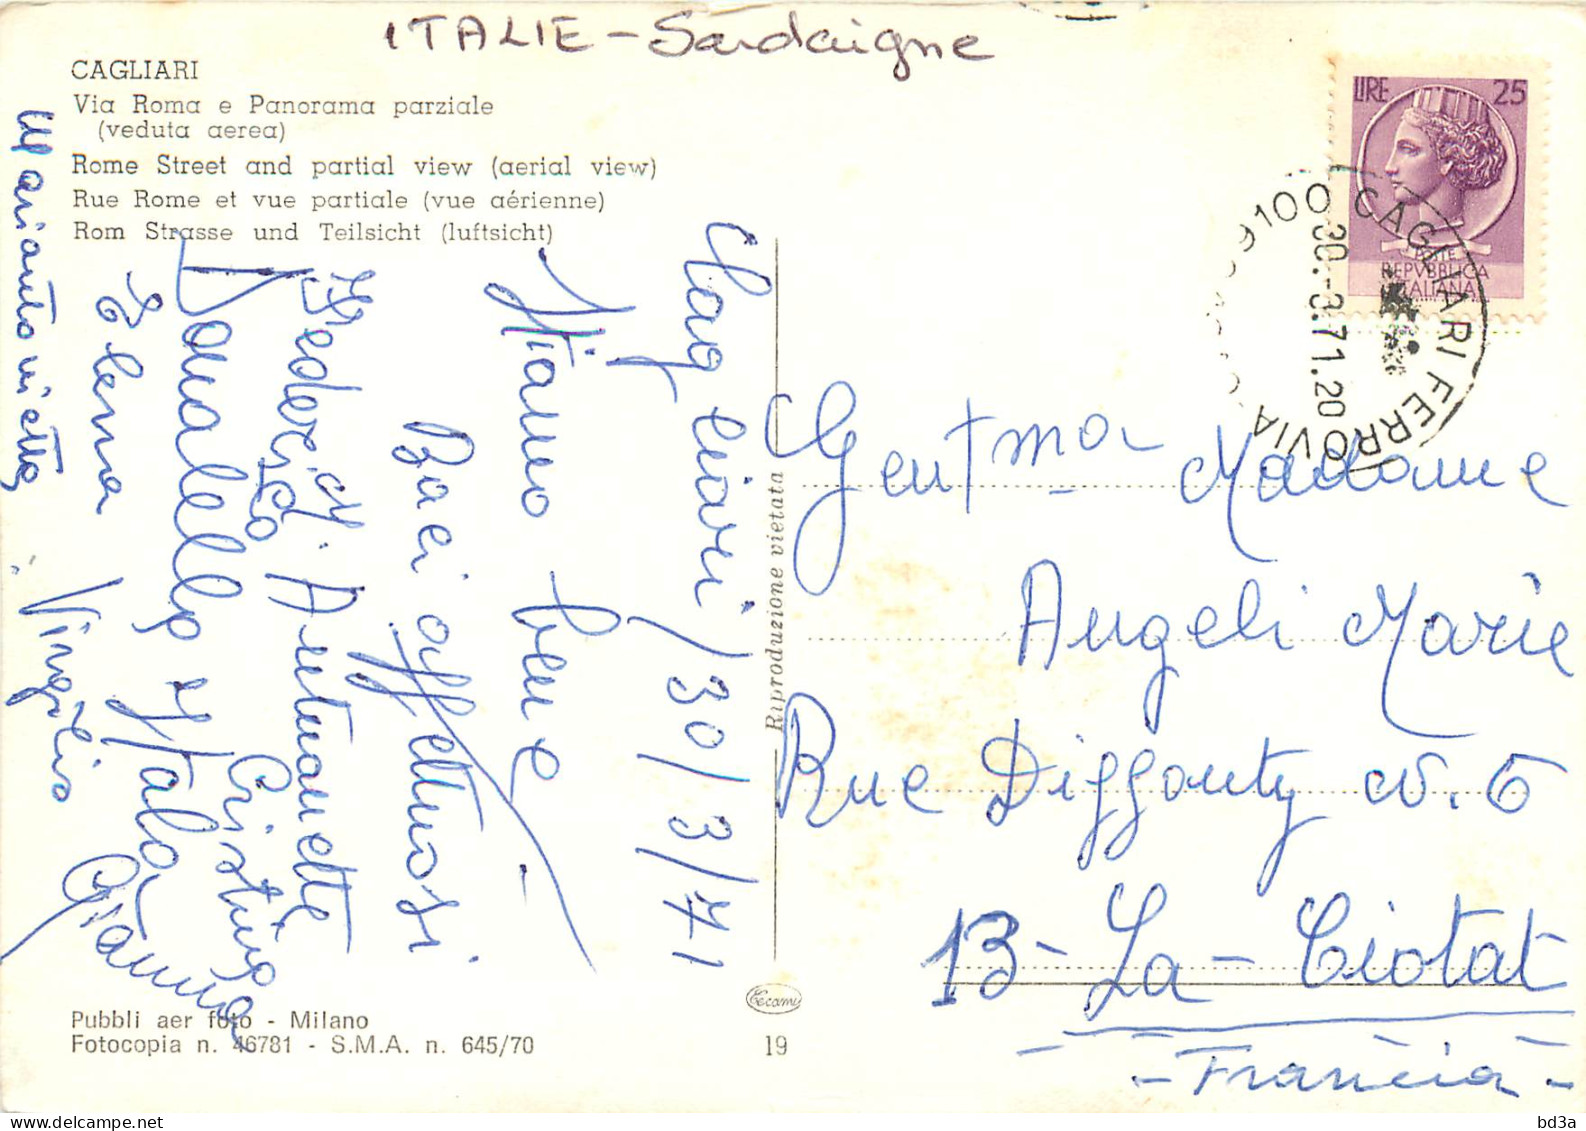 ITALIE - Sardaigne
CAGLIARI
Via Roma e Panorama parziale
(veduta aerea)
Rome Street and partial view (aerial view)
Rue Rome et vue partiale (vue aérienne)
Rom Strasse und Teilsicht (luftsicht)
LIRE 25
POSTE
REPVBBLICA
ITALIANA
09100 CAGLIARI FERROVIA
30.-3.71.20
Cagliari / 30 / 3 / 71
Stiamo bene
Baci affettuosi
Federico M. Antonietta
Donatello e Itala
Cristina
Elena
Virgilio
Gianna
M. Antonietta
Gent.ma Madame
Angeli Marie
Rue Diggonty N. 6
13 - La - Ciotat
- Francia -
Riproduzione vietata
Pubbli aer foto - Milano
Fotocopia n. 46781 - S.M.A. n. 645/70
Tecami
19
bd3a